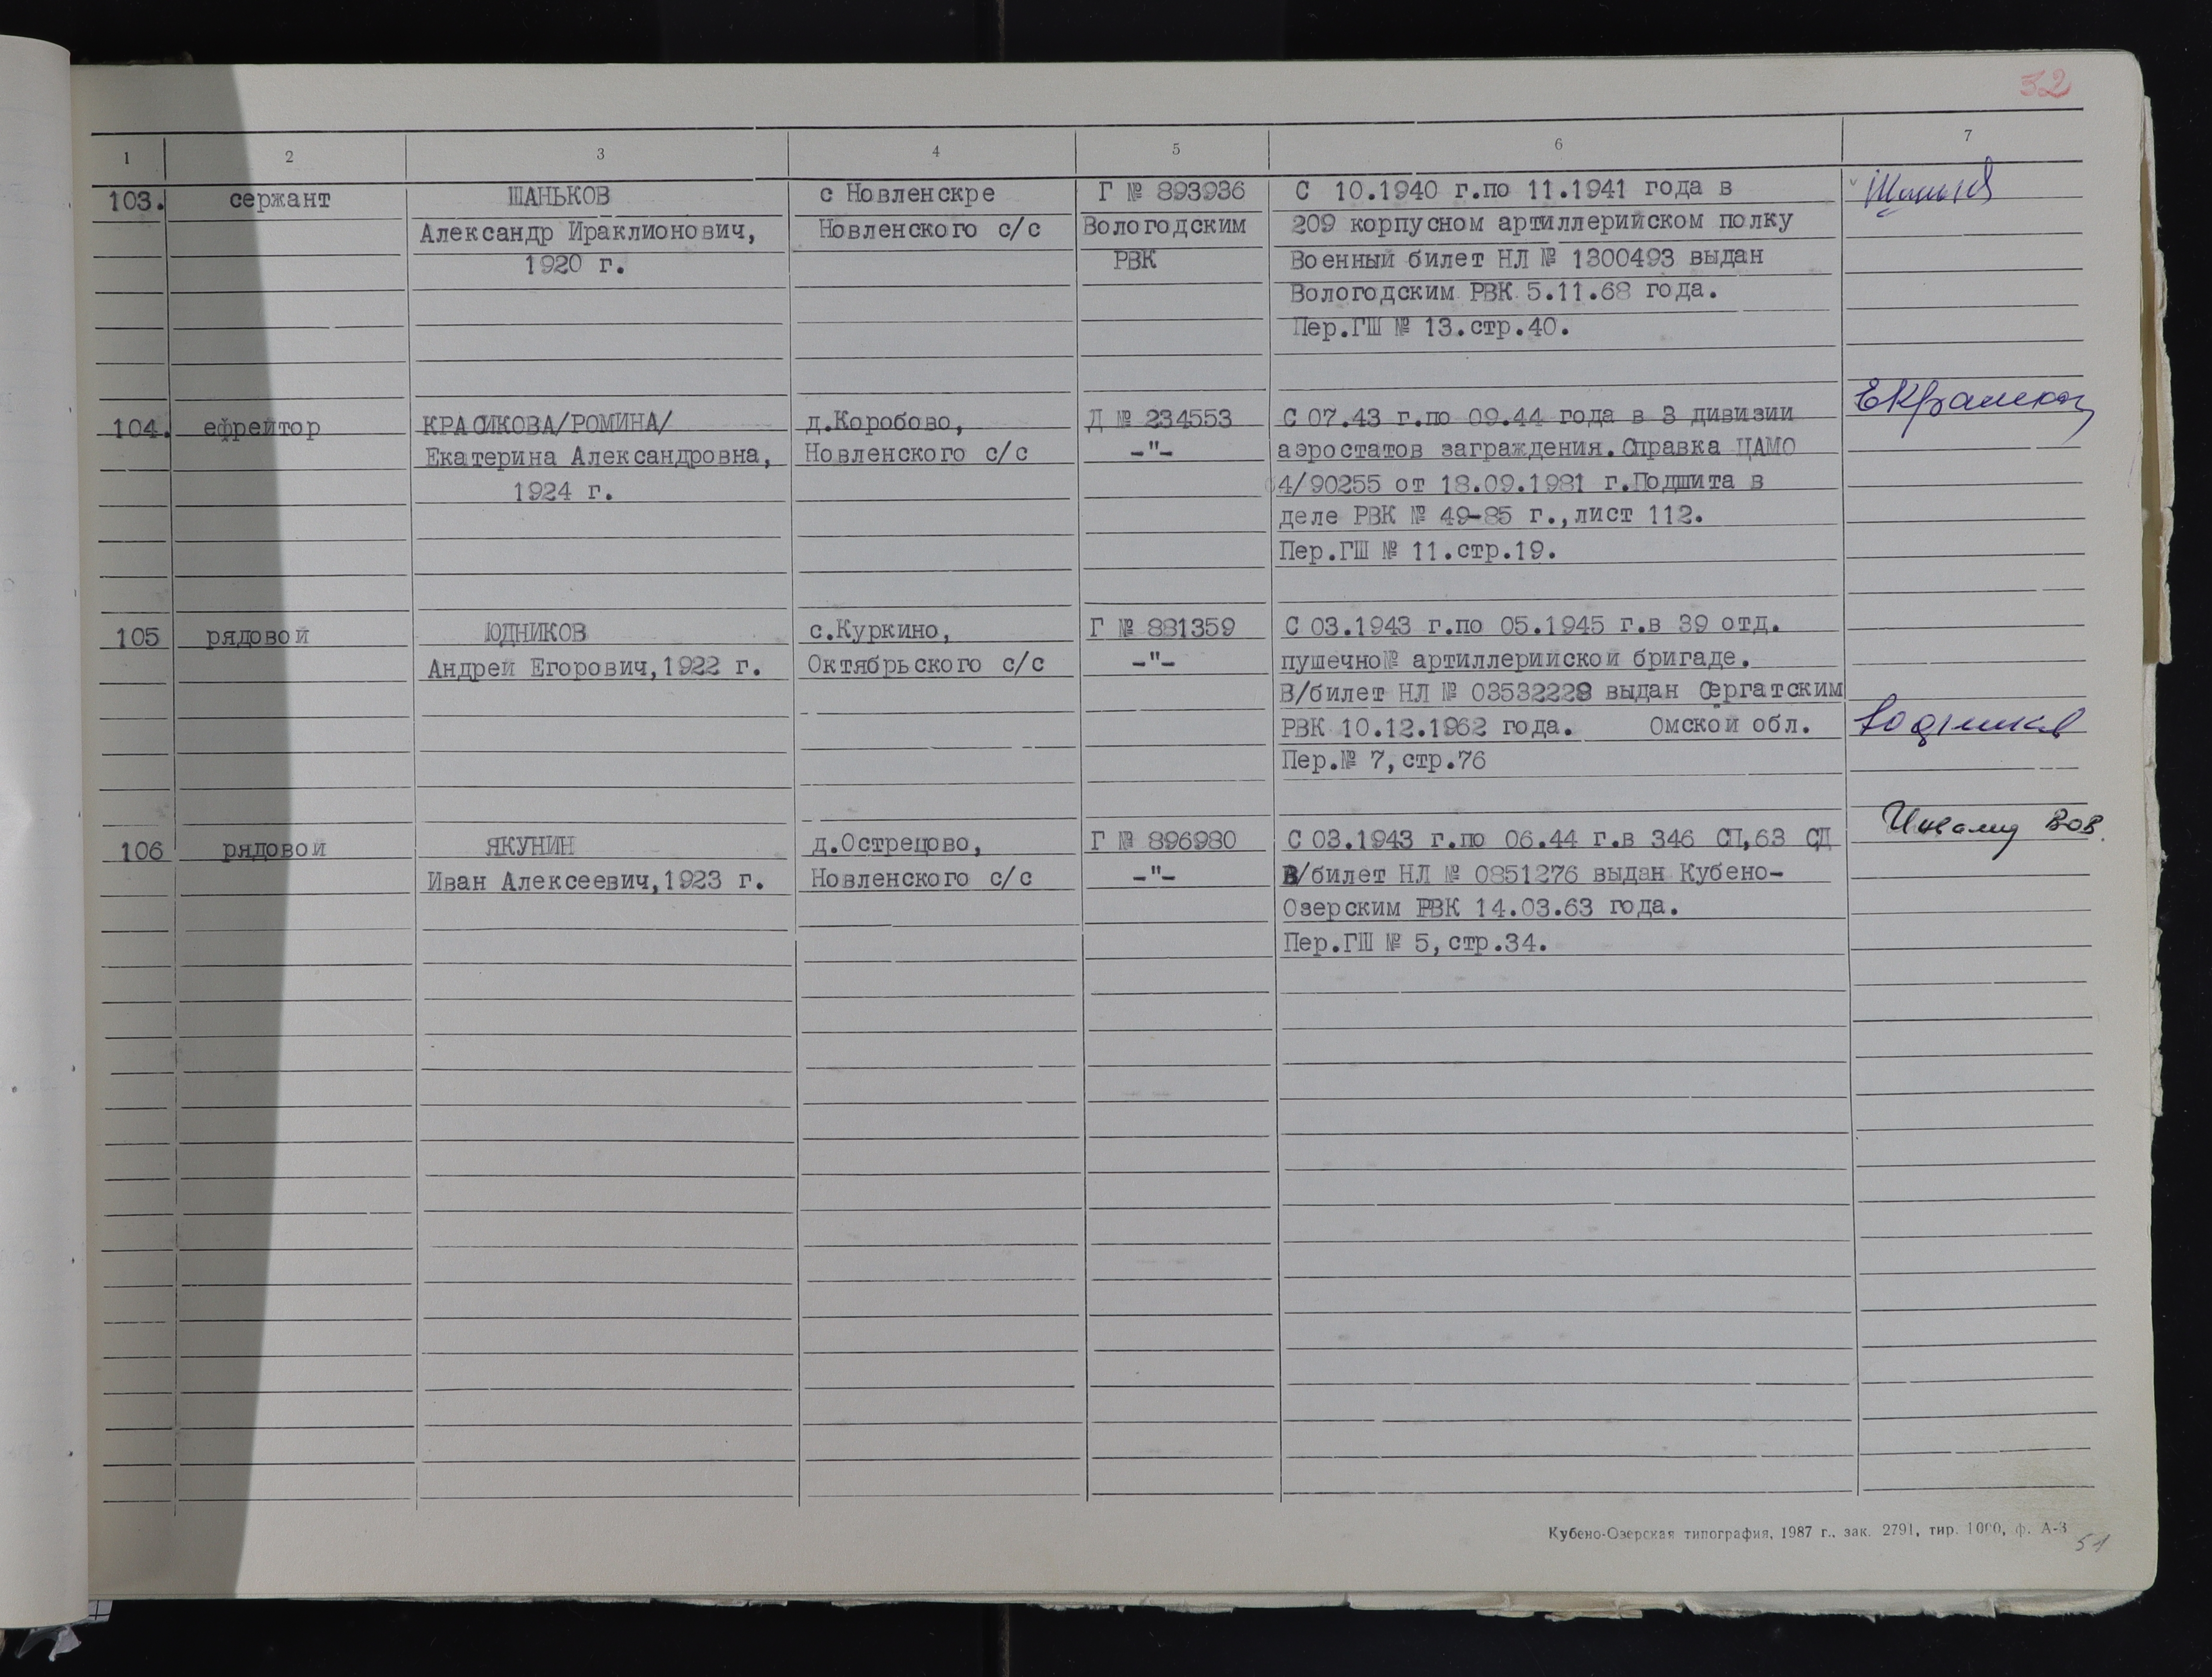 32
1 2 3 4 5 6 7
103. сержант ШАНЬКОВ с Новленскре Г № 893936 С 10.1940 г.по 11.1941 года в
Александр Ираклионович, Новленского с/с Вологодским 209 корпусном артиллерийском полку
1920 г. РВК Военный билет НЛ № 1300493 выдан
Вологодским РВК 5.11.68 года.
Пер.ГШ № 13.стр.40.
104. ефрейтор КРАСИКОВА/РОМИНА/ д.Коробово, Д № 234553 С 07.43 г.по 09.44 года в 3 дивизии
Екатерина Александровна, Новленского с/с -"- аэростатов заграждения.Справка ЦАМО
1924 г. 4/90255 от 18.09.1981 г.Подшита в
деле РВК № 49-85 г.,лист 112.
Пер.ГШ № 11.стр.19.
105 рядовой ЮДНИКОВ с.Куркино, Г № 881359 С 03.1943 г.по 05.1945 г.в 39 отд.
Андрей Егорович,1922 г. Октябрьского с/с -"- пушечно№ артиллерийской бригаде.
В/билет НЛ № 03532228 выдан Сергатским
РВК 10.12.1962 года. Омской обл.
Пер.№ 7,стр.76
Инвалид ВОВ.
106 рядовой ЯКУНИН д.Острецово, Г № 896980 С 03.1943 г.по 06.44 г.в 346 СП,63 СД
Иван Алексеевич,1923 г. Новленского с/с -"- В/билет НЛ № 0851276 выдан Кубено-
Озерским РВК 14.03.63 года.
Пер.ГШ № 5,стр.34.
Кубено-Озерская типография, 1987 г., зак. 2791, тир. 1000, ф. А-3
51